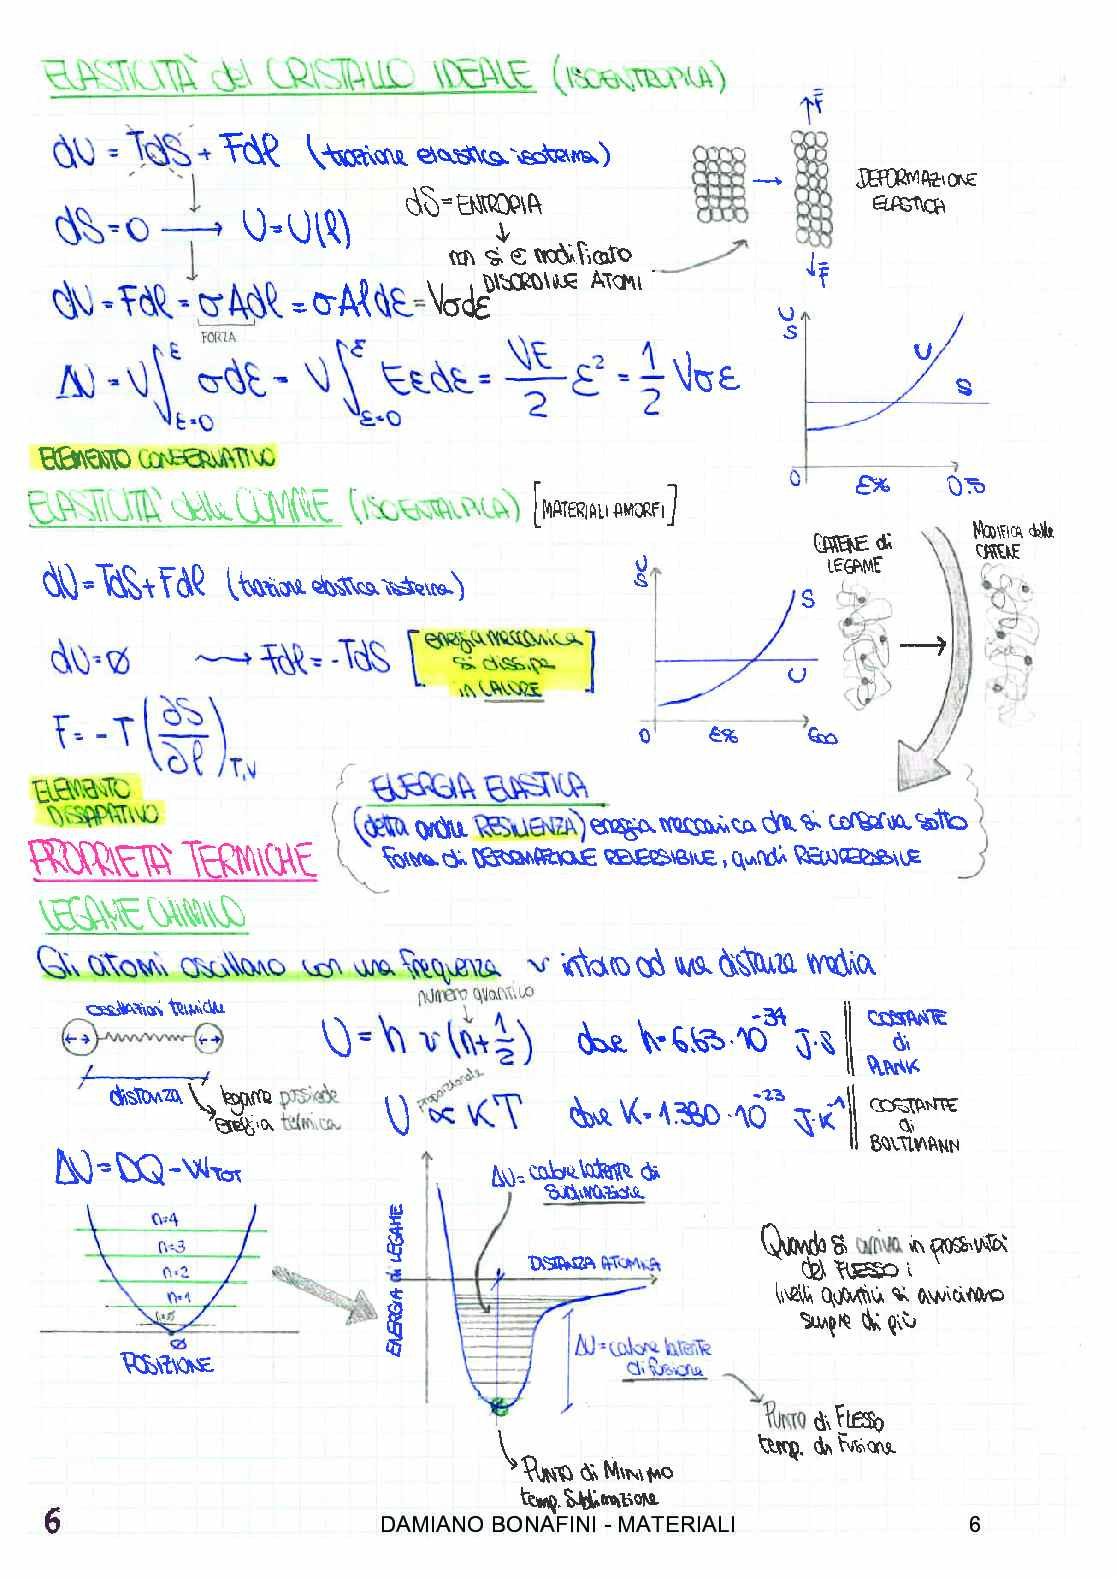 ELASTICITÀ del CRISTALLO IDEALE (ISOENTROPICA)
dU = TdS + Fdl (trazione elastica isoterma)
dS = ENTROPIA
↓
non si è modificato
DISORDINE ATOMI
F̄
F̄
DEFORMAZIONE
ELASTICA
dS = 0 → U = U(l)
dU = Fdl = σAdl = σAldε = Vσdε
FORZA
ΔU = V∫_{ε=0}^{ε} σdε = V∫_{ε=0}^{ε} Eεdε = VE/2 ε² = 1/2 Vσε
U
S
U
S
0 ε% 0.5
ELEMENTO CONSERVATIVO
ELASTICITÀ delle GOMME (ISOENTALPICA) [MATERIALI AMORFI]
dU = TdS + Fdl (trazione elastica isoterma)
dU = ∅ ⟶ Fdl = -TdS
[energia meccanica
si dissipa
in CALORE]
F = -T (∂S/∂l)T,V
U
S
S
U
0 ε% 600
CATENE di
LEGAME
MODIFICA delle
CATENE
ELEMENTO
DISSIPATIVO
ENERGIA ELASTICA
(detta anche RESILIENZA) energia meccanica che si conserva sotto
forma di DEFORMAZIONE REVERSIBILE, quindi RECUPERABILE
PROPRIETÀ TERMICHE
LEGAME CHIMICO
Gli atomi oscillano con una frequenza ν intorno ad una distanza media
oscillazioni termiche
distanza
legame possiede
energia termica
numero quantico
U = h ν (n + 1/2) dove h = 6.63 · 10⁻³⁴ J·s
COSTANTE
di
PLANK
proporzionale
U ∝ KT dove K = 1.380 · 10⁻²³ J·K⁻¹
COSTANTE
di
BOLTZMANN
ΔU = DQ - WTOT
n=4
n=3
n=2
n=1
n=0
∅
POSIZIONE
ENERGIA di LEGAME
ΔU = calore latente di
sublimazione
DISTANZA ATOMICA
ΔU = calore latente
di fusione
Quando si arriva in prossimità
del FLESSO i
livelli quantici si avvicinano
sempre di più
PUNTO di FLESSO
temp. di Fusione
PUNTO di MINIMO
temp. Sublimazione
6
DAMIANO BONAFINI - MATERIALI
6